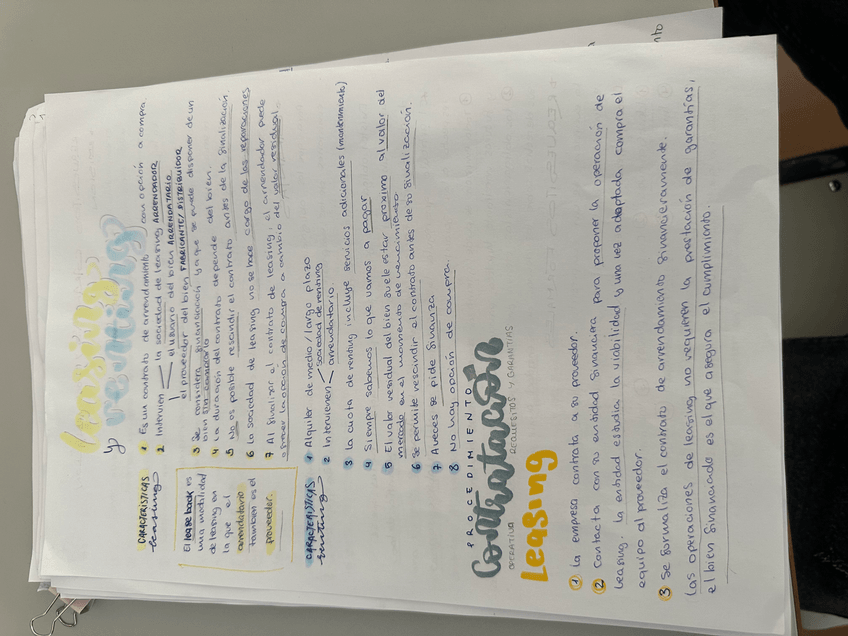 leasing
y renting
CARACTERÍSTICAS
leasing
1 Es un contrato de arrendamiento con opción a compra
2 Intervien la sociedad de leasing ARRENDADOR
el usuario del bien ARRENDATARIO
el proveedor del bien FABRICANTE/DISTRIBUIDOR
3 Se considera financiación ya que se puede disponer de un
bien sin comprarlo
4 La duración del contrato depende del bien.
5 No es posible rescindir el contrato antes de la finalización
6 La sociedad de leasing no se hace cargo de las reparaciones
7 Al finalizar el contrato de leasing, el arrendador puede
ejercer la opción de compra a cambio del valor residual.
El lease back es
una modalidad
de leasing en
la que el
arrendatario
también es el
proveedor.
CARACTERÍSTICAS
renting
1 Alquiler de medio/largo plazo
2 Intervienen sociedad de renting
arrendatario
3 La cuota de renting incluye servicios adicionales (mantenimiento)
4 Siempre sabemos lo que vamos a pagar
5 El valor residual del bien suele estar próximo al valor del
mercado en el momento de vencimiento
6 Se permite rescindir el contrato antes de su finalización.
7 A veces se pide fianza
8 No hay opción de compra.
PROCEDIMIENTO
Contratación
OPERATIVA REQUISITOS Y GARANTIAS
Leasing
1 La empresa contrata a su proveedor.
2 Contacta con su entidad financiera para proponer la operación de
leasing. La entidad estudia la viabilidad y una vez adaptada compra el
equipo al proveedor.
3 Se formaliza el contrato de arrendamiento financieramente.
Las operaciones de leasing no requieren la prestación de garantías,
el bien financiado es el que asegura el cumplimiento.